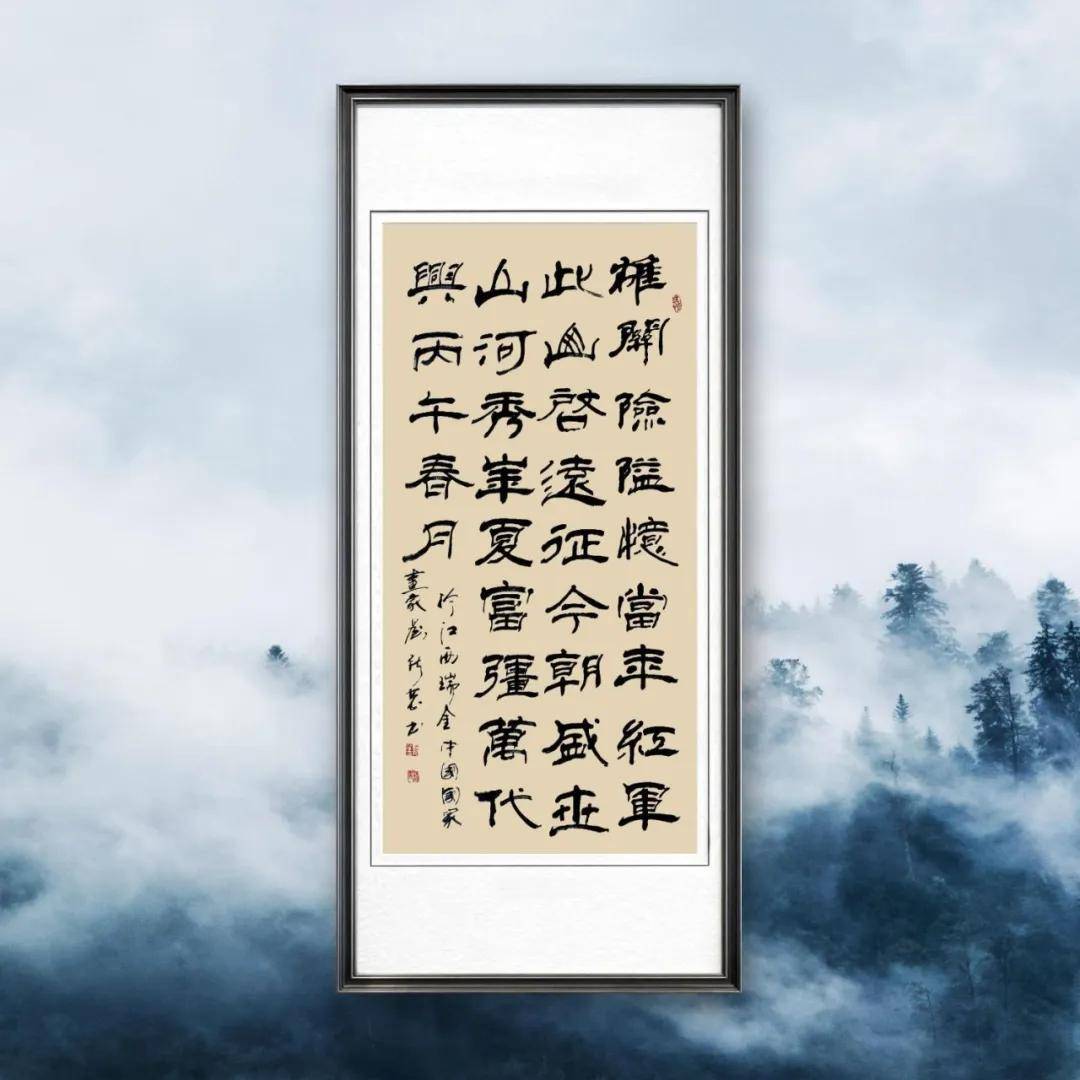 雄關險隘憶當年紅軍
此啓遠征今朝盛世
山河秀華夏富彊萬代
興丙午春月
於江西瑞金中國國家
畫家新书